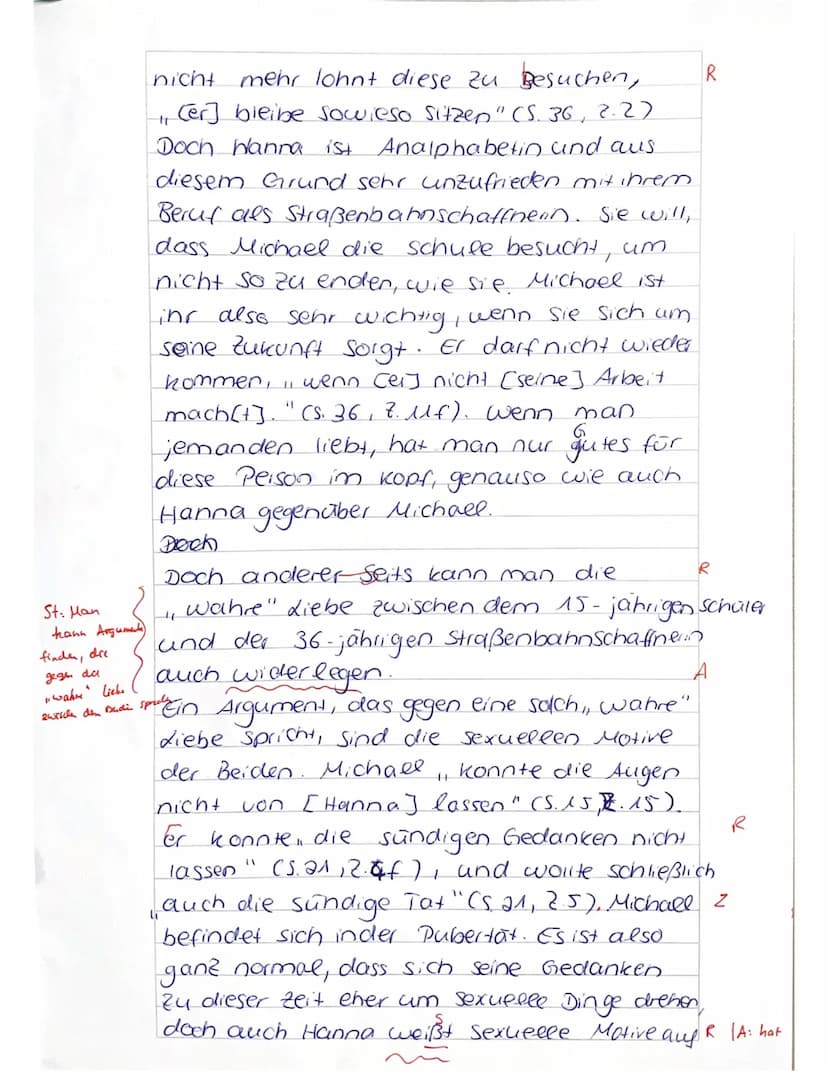 nicht mehr lohnt diese zu besuchen, R
„[er] bleibe sowieso sitzen" (S. 36, Z.2)
Doch Hanna ist Analphabetin und aus
diesem Grund sehr unzufrieden mit ihrem
Beruf als Straßenbahnschaffnerin. Sie will,
dass Michael die Schule besucht, um
nicht so zu enden, wie sie. Michael ist
ihr also sehr wichtig, wenn sie sich um
seine Zukunft sorgt. Er darf nicht wieder
kommen, „wenn [er] nicht [seine] Arbeit
mach[t]." (S. 36, Z. 11f). Wenn man
jemanden liebt, hat man nur gutes für
G
diese Person im Kopf, genauso wie auch
Hanna gegenüber Michael.
Doch
Doch anderer seits kann man die R
„wahre" Liebe zwischen dem 15-jährigen Schüler
und der 36-jährigen Straßenbahnschaffnerin
auch widerlegen. A
St: Man
kann Argumente
finden, die
gegen die
„wahre" Liebe
zwischen den Beiden sprechen
Ein Argument, das gegen eine solch „wahre"
Liebe spricht, sind die sexuellen Motive
der Beiden. Michael „konnte die Augen
nicht von [Hanna] lassen" (S.15, Z.15).
Er konnte „die sündigen Gedanken nicht R
lassen" (S. 21, Z.4f), und wollte schließlich
„auch die sündige Tat" (S. 21, Z.5). Michael Z
befindet sich in der Pubertät. Es ist also
ganz normal, dass sich seine Gedanken
zu dieser Zeit eher um sexuelle Dinge drehen,
doch auch Hanna weißt sexuelle Motive auf R |A: hat
s